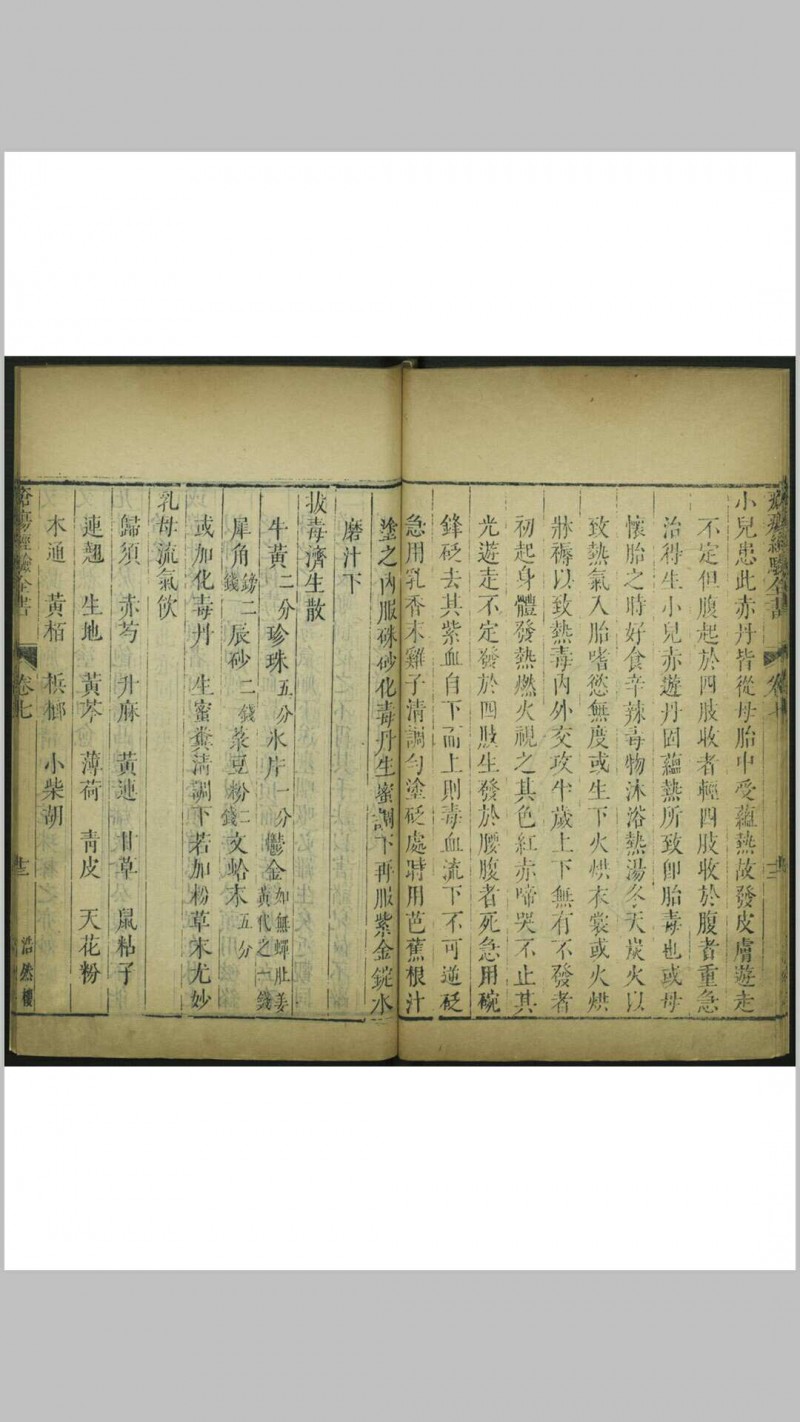 小兒患此赤丹皆從母胎中受蘊熱故發皮膚遊走
不定但腹起於四肢收者輕四肢收於腹者重急
治得生小兒赤遊丹因蘊熱所致卽胎毒也或母
懷胎之時好食辛辣毒物沐浴熱湯冬天炭火以
致熱氣入胎嗜慾無度或生下火烘衣裳或火烘
牀褥以致熱毒內外交攻半歲上下無有不發者
初起身體發熱燃火視之其色紅赤啼哭不止其
光遊走不定發於四肢生發於腰腹者死急用碗
鋒砭去其紫血自下而上則毒血流下不可逆砭
急用乳香末雞子清調勻塗砭處時用芭蕉根汁
塗之內服硃砂化毒丹生蜜調下再服紫金錠水
磨汁下
拔毒濟生散
牛黃二分 珍珠五分 氷片一分 鬱金如無蟬肚姜黃代之一錢
犀角鎊二錢 辰砂二錢 菉豆粉二錢 文蛤末五分
或加化毒丹 生蜜 清調下若加粉草末尤妙
乳母流氣飲
歸須 赤芍 升麻 黃連 甘草 鼠粘子
連翹 生地 黃芩 薄荷 靑皮 天花粉
木通 黃栢 梹榔 小柴胡
瘍經驗全書 卷七 浩然樓